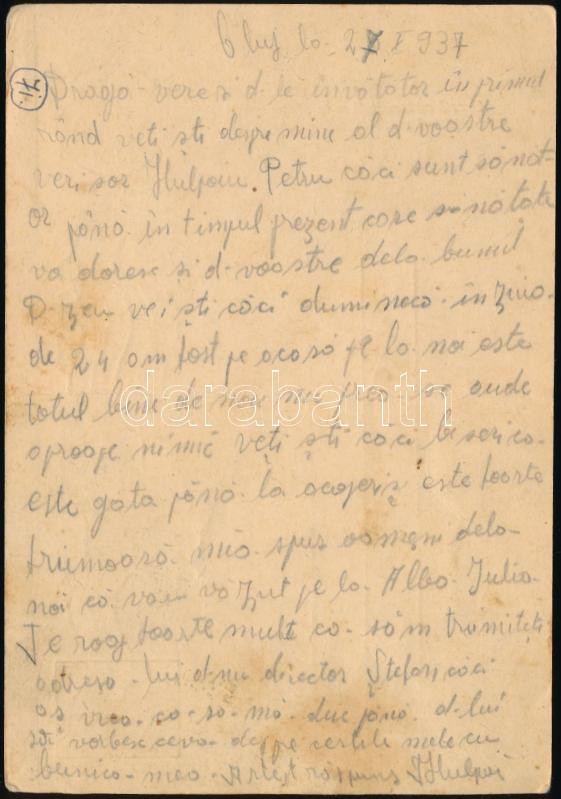 Cluj la 27 X 937
17.
Draga vere și d-le învătator în primul
rând veti sti despre mine al d-voastre
veri sor Hulpoiu Petru căci sunt sănat
os până în timpul prezent care sănătate
va doresc si d-voastre dela bunul
D zeu veti sti căci dumineca în ziua
de 24 am fost pe acasa pe la noi este
totul bine de nu
aproape nimic veti sti căci biserica
este gata până la acoperis este foarte
frumoasă mia spus oamenii dela
noi că vau văzut pe la Alba Iulia
Te rog foarte mult ca săm trimiteti
adresa lui d-nu director Ștefan căci
as vrea ca să mă duc până d-lui
să vorbesc ceva despe certile mele cu
bunica mea Astept raspuns Hulpoi
darabanth
.com